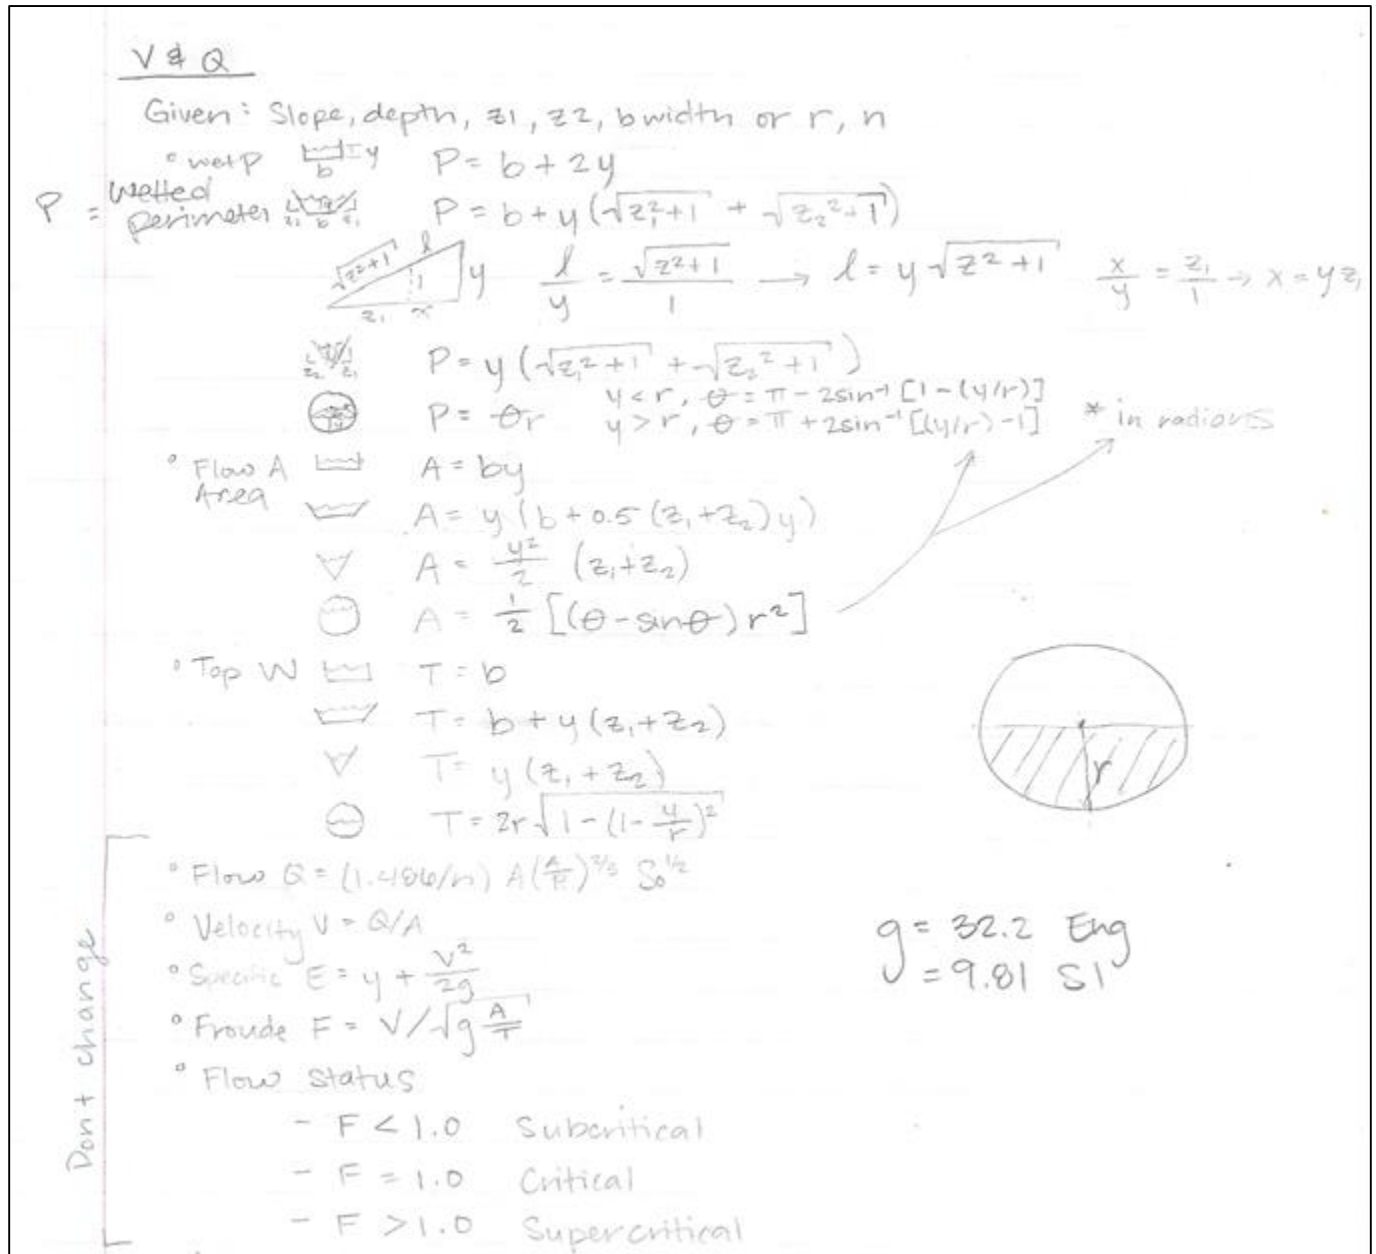 V & Q
Given: Slope, depth, z1, z2, b width or r, n
° wet P b y P = b + 2y
P = Wetted perimeter z₂ b z₁ P = b + y (√z₁²+1 + √z₂²+1)
√z²+1 l 1 y z₁ x l/y = √z²+1/1 → l = y √z²+1 x/y = z₁/1 → x = yz₁
z₂ z₁ P = y (√z₁²+1 + √z₂²+1)
y < r, θ = π - 2sin⁻¹ [1 - (y/r)]
P = θr y > r, θ = π + 2sin⁻¹ [(y/r) - 1] * in radians
° Flow A Area A = by
A = y (b + 0.5 (z₁+z₂) y)
A = y²/2 (z₁+z₂)
A = 1/2 [(θ - sinθ) r²]
° Top W T = b
T = b + y (z₁ + z₂)
T = y (z₁ + z₂)
r
T = 2r √1 - (1 - y/r)²
° Flow Q = (1.486/n) A (A/P)^2/3 S₀^1/2
° Velocity V = Q/A
° Specific E = y + V²/2g
° Froude F = V/√g A/T
g = 32.2 Eng
= 9.81 SI
° Flow Status
- F < 1.0 Subcritical
- F = 1.0 Critical
- F > 1.0 Supercritical
Don't change